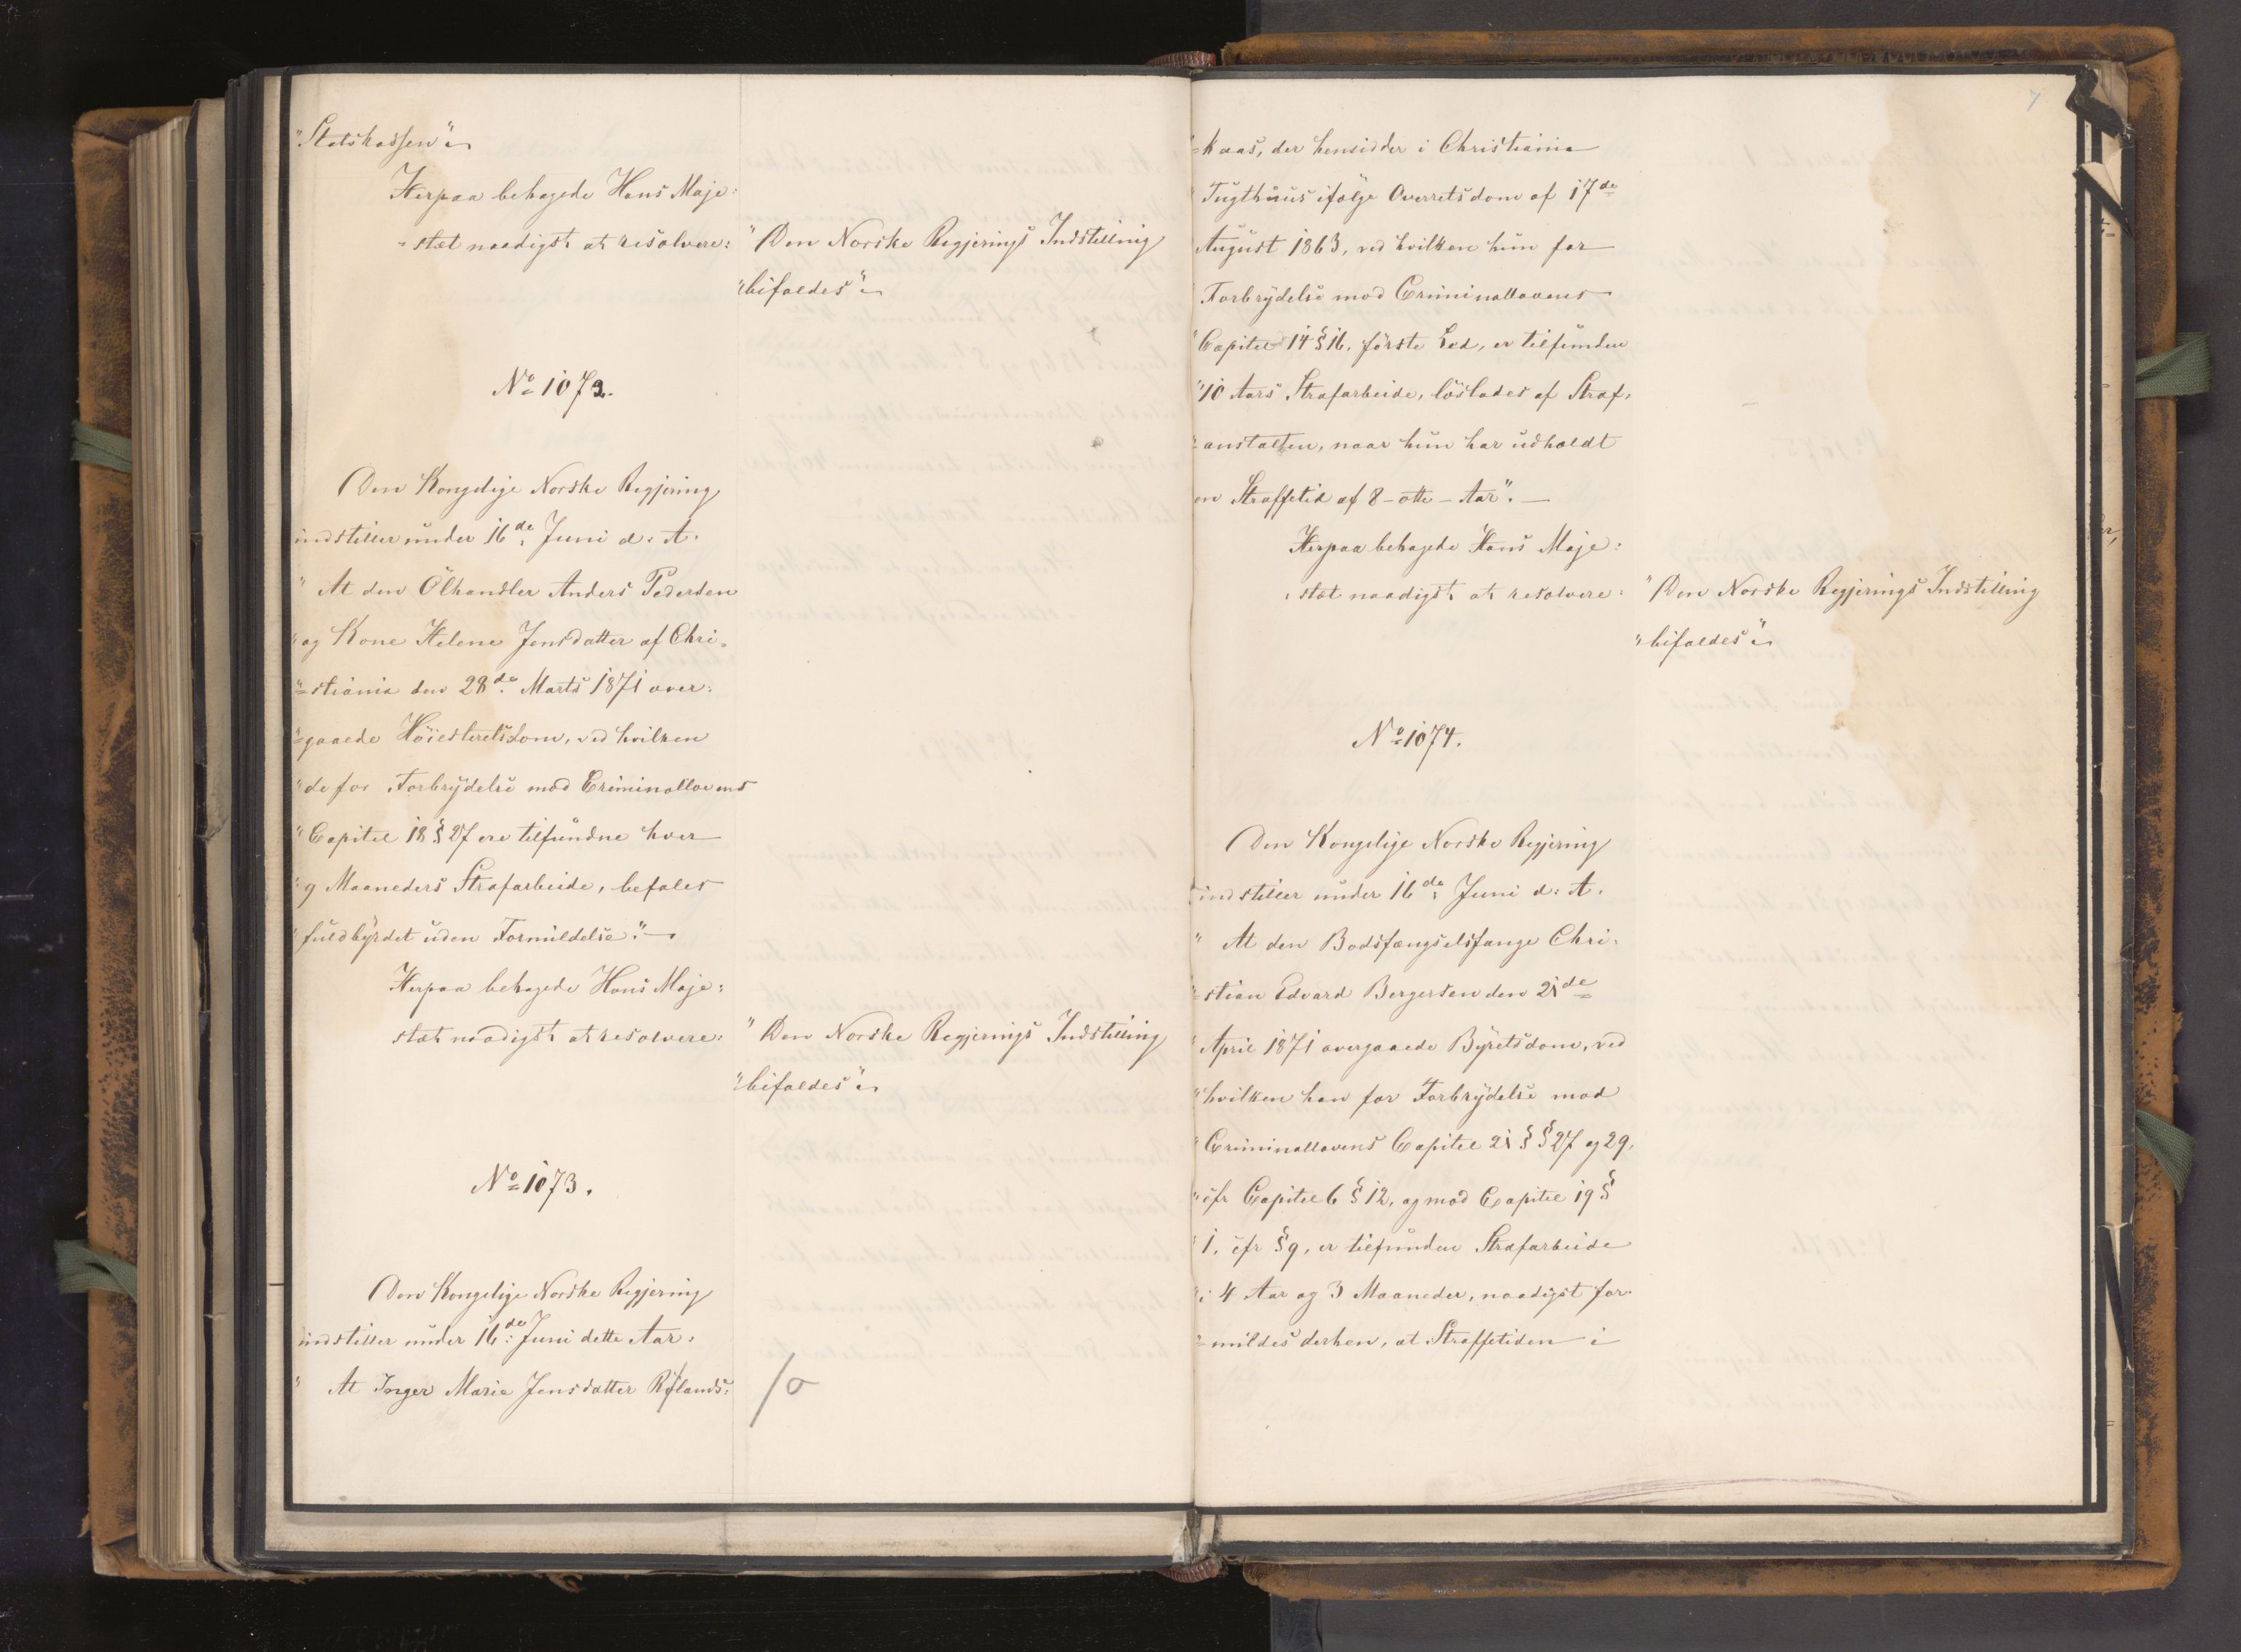 "Statskassen"
Herpaa behagede Hans Maje:
"stæt naadigst at resolvere:
"Den Norske Regjerings Indstilling
"bifaldes"
No 1072.
Den Kongelige Norske Regjering
indstiller under 16de Juni d: A.
" At den Ölhandler Anders Pedersen
"og Kone Helene Jensdatter af Chri=
"=stiania den 28de Marts 1871 over:
"=gaaede Höiesteretsdom, ved hvilken
"de for Forbrydelse mod Criminallovens
"Capitel 18 § 27 ere tilfundne hver
"9 Maaneders Strafarbeide, befales
"fuldbyrdet uden Formildelse."
Herpaa behagede Hans Maje:
stæt naadigst at resolvere:
"Den Norske Regjerings Indstilling
"bifaldes"
No 1073.
Den Kongelige Norske Regjering
indstiller under 16de Juni dette Aar:
" At Inger Marie Jensdatter Röflands:
/o
7
"=kaas, der hensidder i Christiania
"Tugthuus ifölge Overretsdom af 17de
"August 1863, ved hvilken hun for
"Forbrydelse mod Criminallovens
"Capitel 14 § 16, förste Led, er tilfunden
"10 Aars Strafarbeide, löslades af Straf,
"=anstalten, naar hun har udholdt
en Straffetid af 8 - otte - Aar".
Herpaa behagede Hans Maje:
"stæt naadigst at resolvere:
"Den Norske Regjerings Indstilling
"bifaldes"
No 1074.
Den Kongelige Norske Regjering
indstiller under 16de Juni d: A.
" At den Bodsfængselsfange Chri=
"=stian Edvard Bergersen den 21de
"April 1871 overgaaede Byretsdom, ved
"hvilken han for Forbrydelse mod
"Criminallovens Capitel 21 § § 27 og 29,
"cfr Capitel 6 § 12, og mod Capitel 19 §
"1, cfr § 9, er tilfunden Strafarbeide
"i 4 Aar og 3 Maaneder, naadigst for=
"=mildes derhen, at Straffetiden i